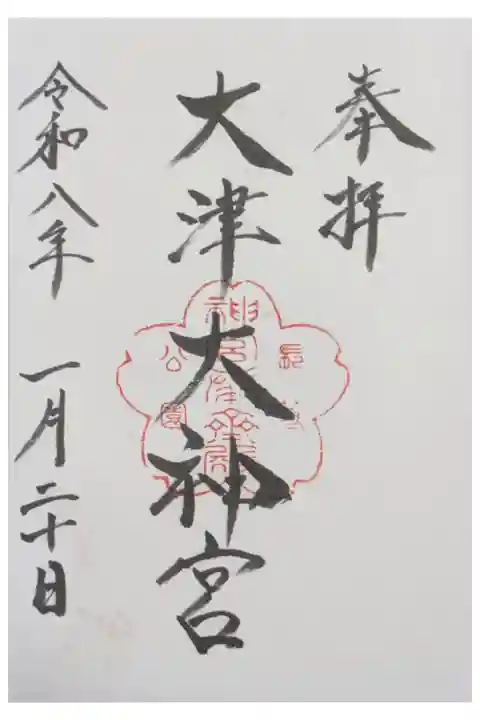 奉拝
大津大神宮
令和八年 一月二十日
公園